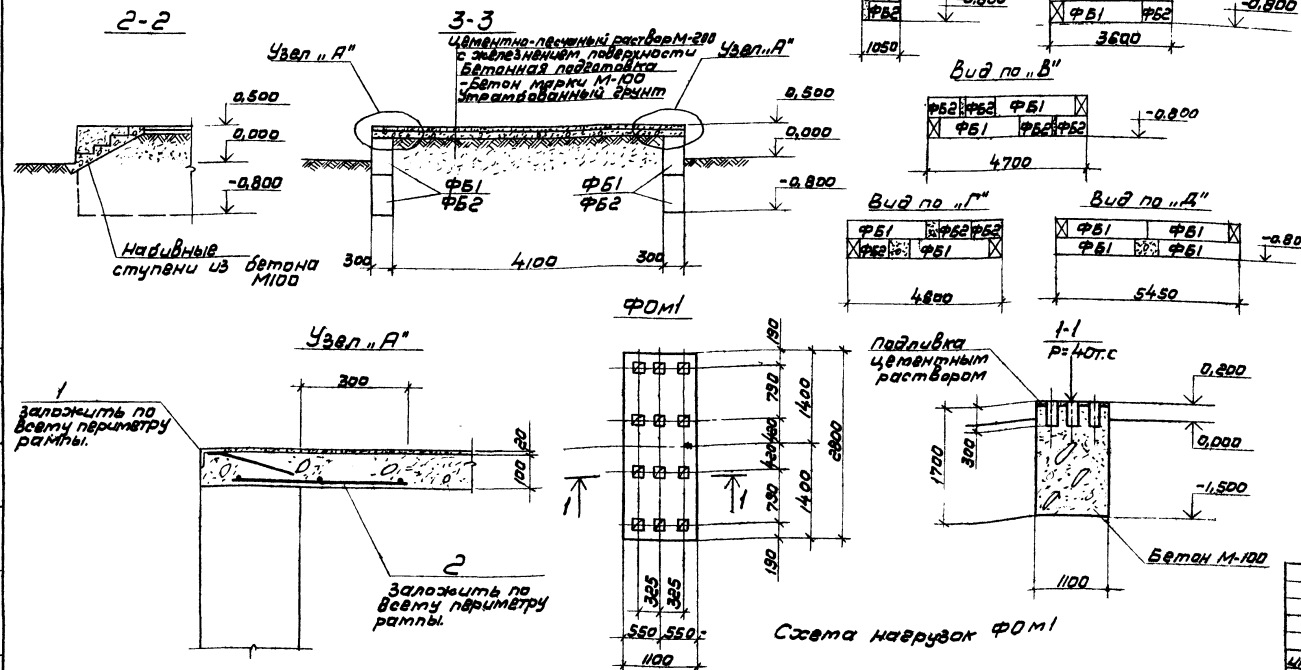 2-2
Узел „А"
0,500
0,000
-0,800
Набивные
ступени из бетона
М100
3-3
Цементно-песчаный раствор М-200
с железнением поверхности
Бетонная подготовка
-Бетон марки М-100
Утрамбованный грунт
Узел „А"
0,500
0,000
-0,800
ФБ1
ФБ2
ФБ1
ФБ2
300
4100
300
ФБ2
-0,800
1050
ФБ1
ФБ2
-0,800
3600
Вид по „В"
ФБ2
ФБ2
ФБ1
ФБ1
ФБ2
ФБ2
-0,800
4700
Вид по „Г"
ФБ1
ФБ2
ФБ2
ФБ2
ФБ1
4600
Вид по „Д"
ФБ1
ФБ1
ФБ1
ФБ1
-0.80
5450
Узел „А"
300
1
заложить по
всему периметру
рампы.
20
100
2
Заложить по
всему периметру
рампы.
ФОМ1
190
790
420
420
790
190
1400
1400
2800
1
1
325
325
550
550
1100
1-1
Р=40т.с
подливка
цементным
раствором
0,200
0,000
-1,500
1700
300
Бетон М-100
1100
Схема нагрузок ФОМ1